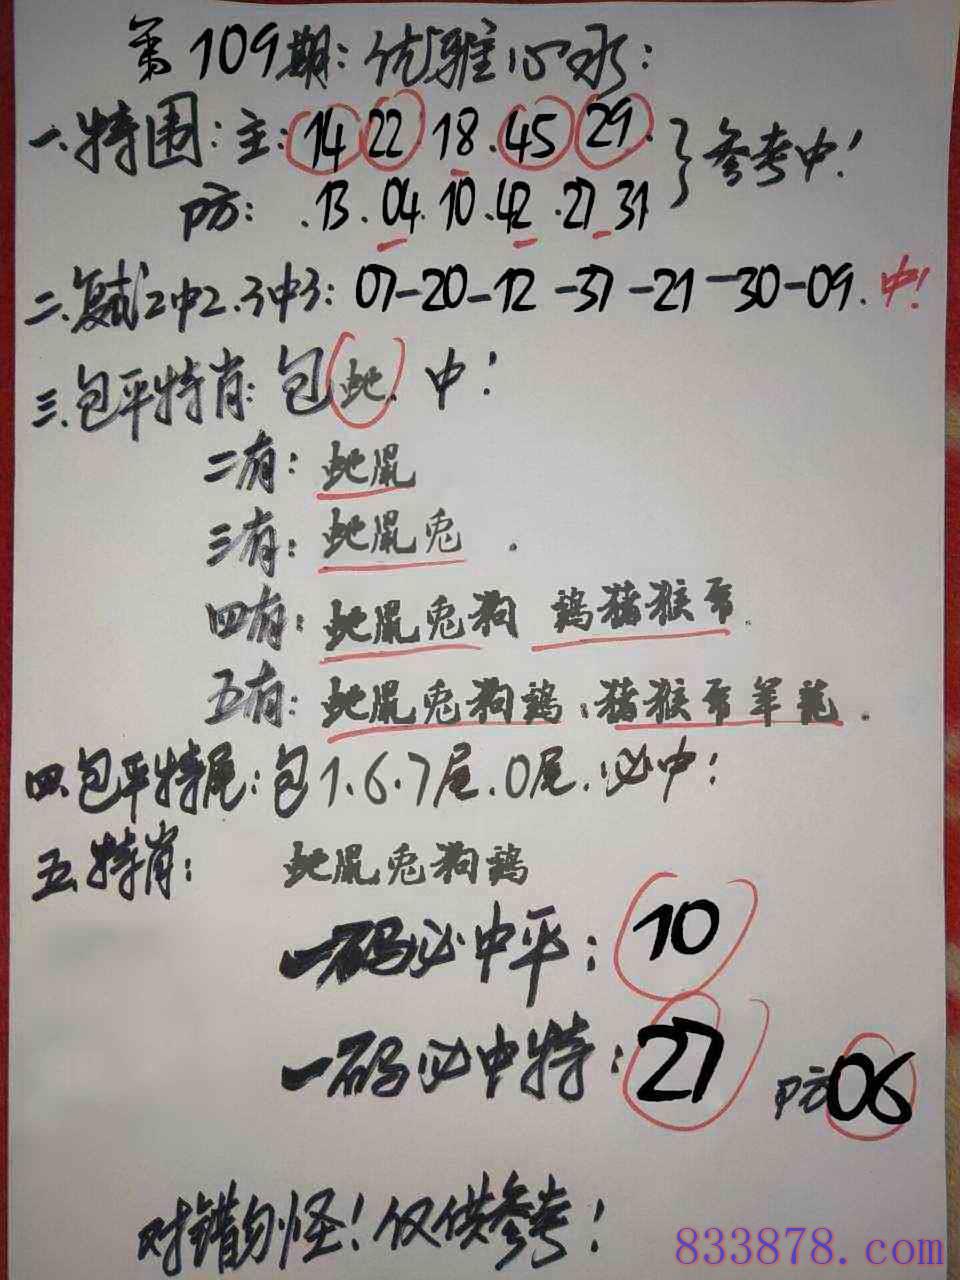 第109期:优雅心水:
一.特围:主:14 22 18.45 29.
防:.13.04.10.42.27 31
}参考中!
二.复试2中2.3中3:07-20-12-37-21-30-09.中!
三.包平特肖:包蛇.中!
二有:蛇鼠
三有:蛇鼠兔.
四有:蛇鼠兔狗 鸡猪猴马.
五有:蛇鼠兔狗鸡.猪猴马羊龙.
四.包平特尾:包1.6.7尾.0尾.必中!
五.特肖: 蛇鼠兔狗鸡
一码必中平:10
一码必中特:27 防06
对错勿怪!仅供参考!
833878.com